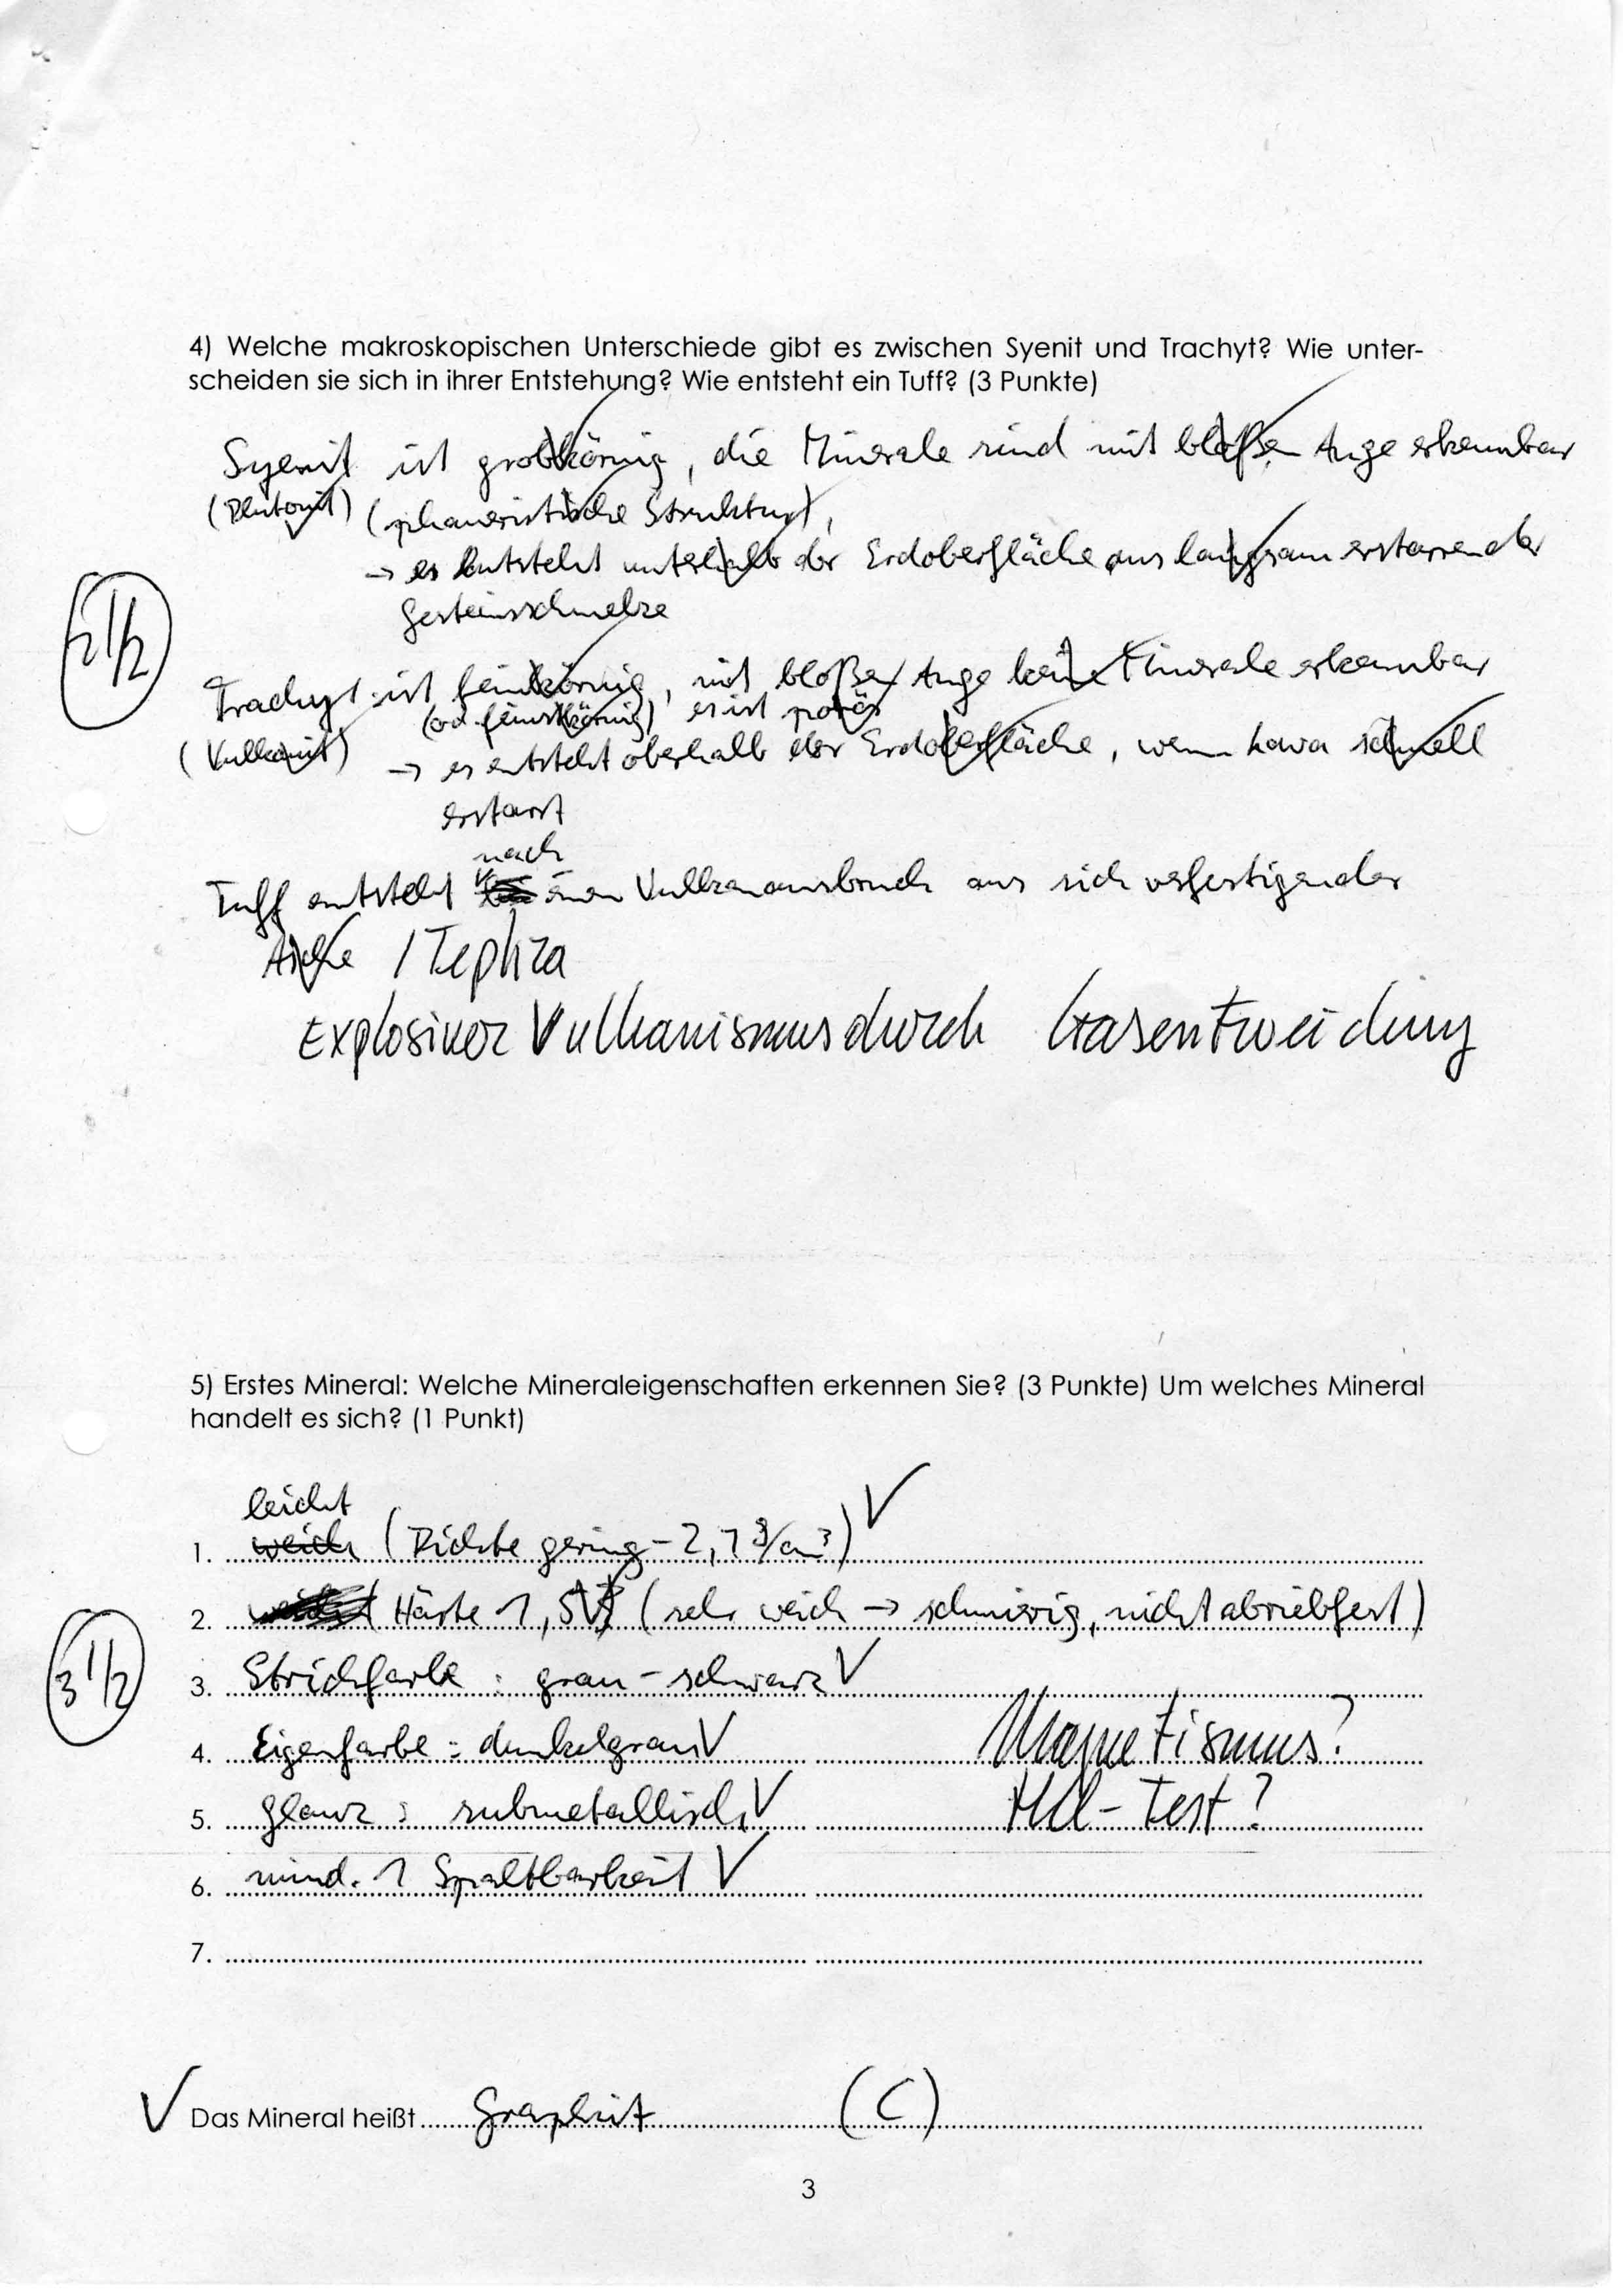 4) Welche makroskopischen Unterschiede gibt es zwischen Syenit und Trachyt? Wie unter-
scheiden sie sich in ihrer Entstehung? Wie entsteht ein Tuff? (3 Punkte)
Syenit ist grobkörnig, die Minerale sind mit bloßen Auge erkennbar
(Plutonit) (phaneritische Struktur),
→ es entsteht unterhalb der Erdoberfläche aus langsam erstarrender
Gesteinsschmelze
2 1/2
Trachyt ist feinkörnig, mit bloßen Auge keine Minerale erkennbar
(od. feinstkörnig) es ist porös
(Vulkanit) → es entsteht oberhalb der Erdoberfläche, wenn Lava schnell
erstarrt
nach
Tuff entsteht einen Vulkanausbruch aus sich verfestigender
Asche / Tephra
Explosiver Vulkanismus durch Gasentweichung
5) Erstes Mineral: Welche Mineraleigenschaften erkennen Sie? (3 Punkte) Um welches Mineral
handelt es sich? (1 Punkt)
leicht
1. weich (Dichte gering - 2,1 g/cm³)
2. Härte 1,5 (sehr weich → schmierig, nicht abriebfest)
3. Strichfarbe : grau - schwarz
3 1/2
4. Eigenfarbe : dunkelgrau Magnetismus?
5. Glanz : submetallisch HCl-Test?
6. mind. 1 Spaltbarkeit
7.
Das Mineral heißt Graphit (C)
3